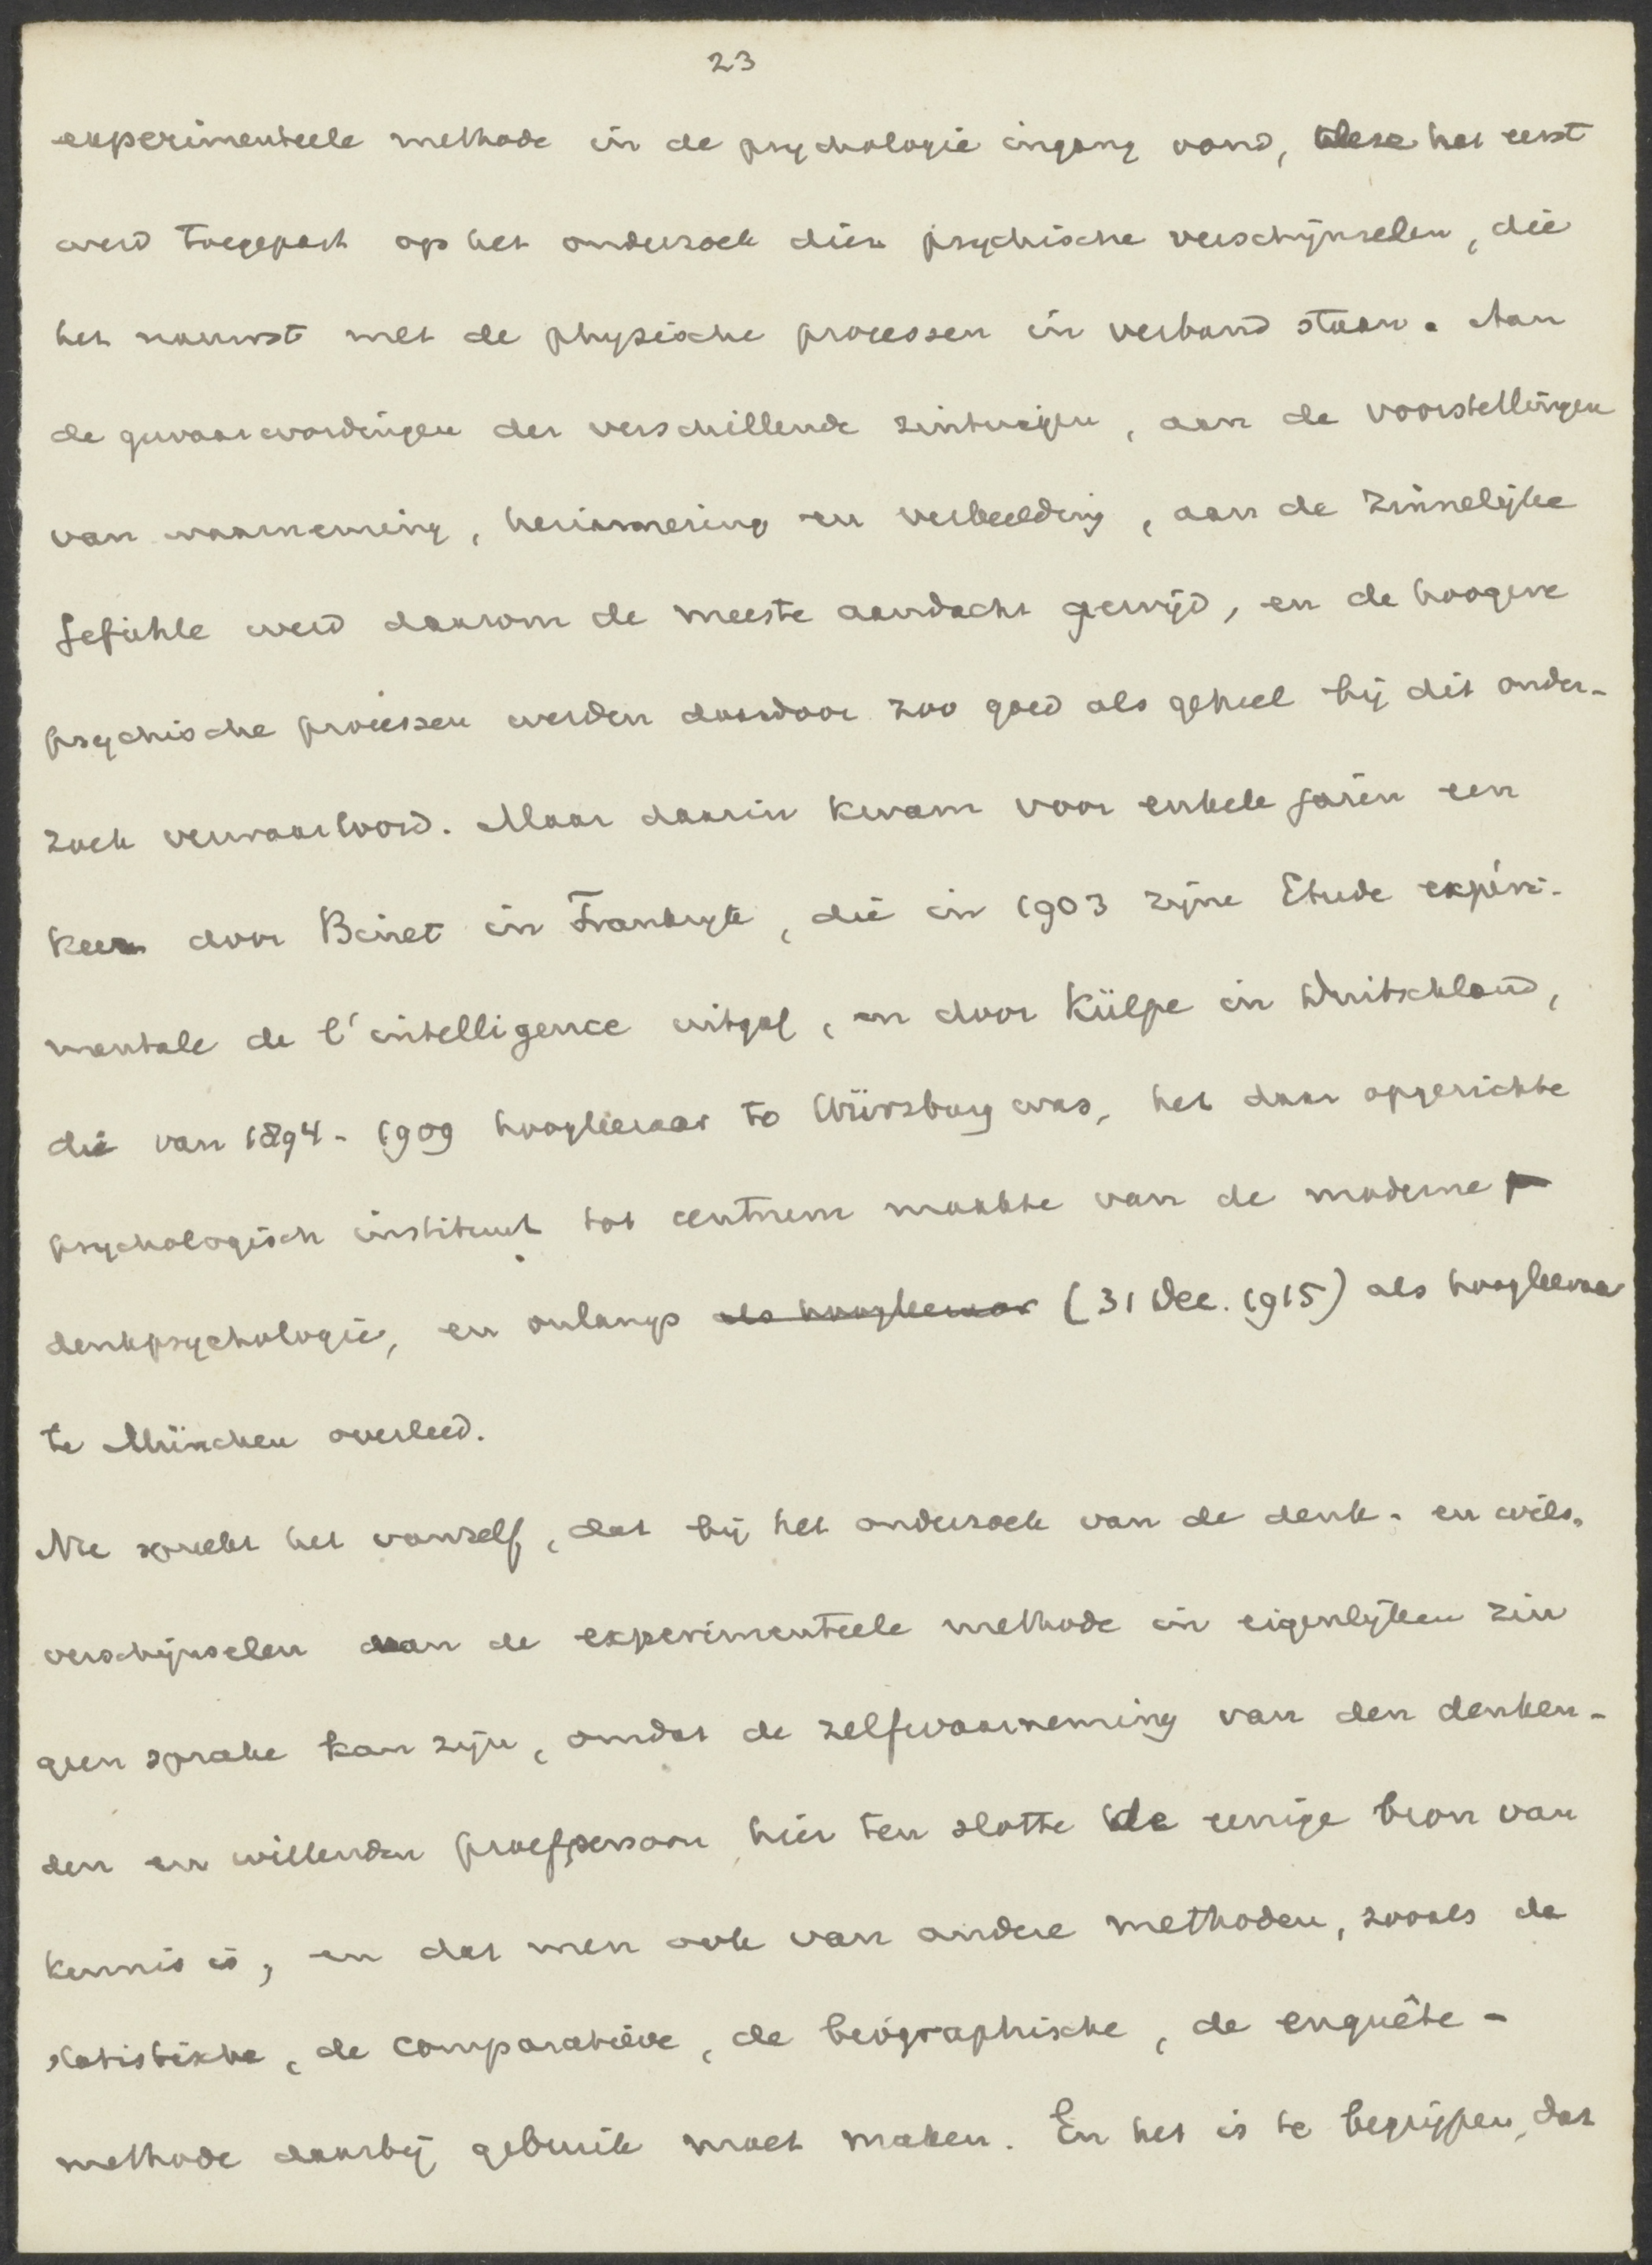 23
experimenteele methode in de psychologie ingang vond, deze het eerst
werd toegepast op het onderzoek dier psychische verschijnselen, die
het nauwst met de physische processen in verband staan. Aan
de gewaarwordingen der verschillende zintuigen, aan de voorstellingen
van waarneming, herinnering en verbeelding, aan de zinnelijke
Gefühle werd daarom de meeste aandacht gewijd, en de hoogere
psychische processen werden daardoor zoo goed als geheel bij dit onder-
zoek verwaarloosd. Maar daarin kwam voor enkele jaren een
keer door Binet in Frankrijk, die in 1903 zijne Etude expéri-
mentale de l'intelligence uitgaf, en door Külpe in Duitschland,
die van 1894-1909 hoogleeraar te Würzburg was, het daar opgerichte
psychologisch instituut tot centrum maakte van de moderne
denkpsychologie, en onlangs als hoogleeraar (31 Dec. 1915) als hoogleeraar
te München overleed.
Nu spreekt het vanzelf, dat bij het onderzoek van de denk- en wils-
verschijnselen van de experimenteele methode in eigenlijken zin
geen sprake kan zijn, omdat de zelfwaarneming van den denken-
den en willenden proefpersoon hier ten slotte de eenige bron van
kennis is, en dat men ook van andere methoden, zooals de
statistische, de comparatieve, de biographische, de enquête-
methode daarbij gebruik moet maken. En het is te begrijpen, dat